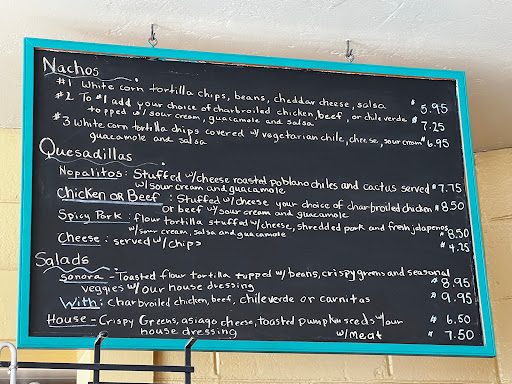 Nachos
#1 White corn tortilla chips, beans, cheddar cheese, salsa $5.95
#2 To #1 add your choice of charbroiled chicken, beef, or chile verde
topped w/ sour cream, guacamole and salsa $7.25
#3 White corn tortilla chips covered w/ vegetarian chile, cheese, sour cream $6.95
guacamole and salsa
Quesadillas
Nopalitos: Stuffed w/cheese roasted poblano chiles and cactus served $7.75
w/sour cream and guacamole
Chicken or Beef: Stuffed w/cheese your choice of charbroiled chicken $8.50
or beef w/sour cream and guacamole
Spicy Pork: flour tortilla stuffed w/cheese, shredded pork and fresh jalapenos
w/sour cream, salsa and guacamole $8.50
Cheese: served w/chips $4.75
Salads
Sonora - Toasted flour tortilla topped w/beans, crispy greens and seasonal
veggies w/our house dressing $8.95
With: charbroiled chicken, beef, chile verde or carnitas $9.95
House - Crispy Greens, asiago cheese, toasted pumpkin seeds w/our $6.50
house dressing w/meat $7.50